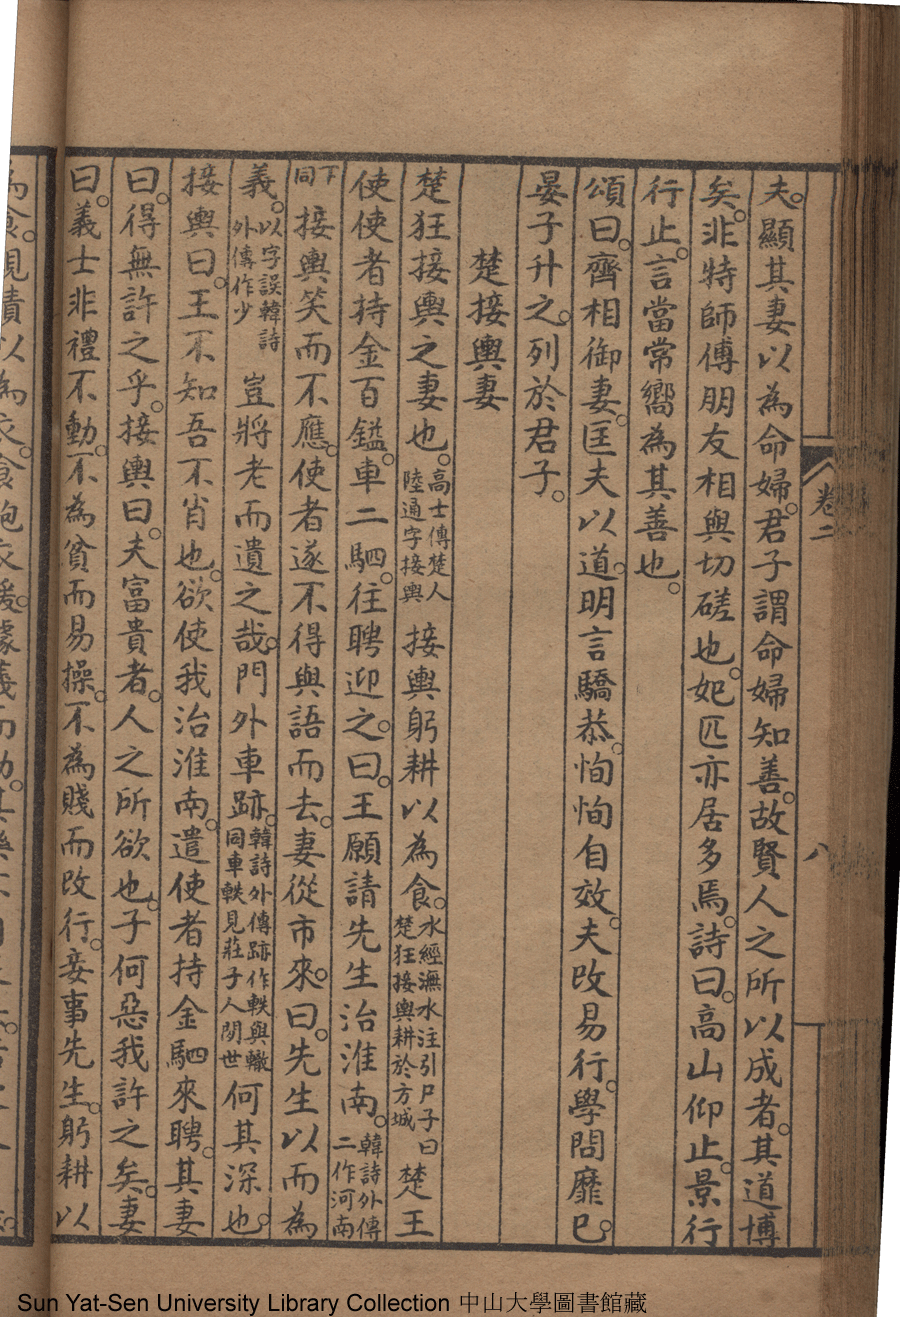 卷二
八
夫。顯其妻以為命婦。君子謂命婦知善。故賢人之所以成者。其道博
矣。非特師傅朋友相與切磋也。妃匹亦居多焉。詩曰。高山仰止。景行
行止。言當常嚮為其善也。
頌曰。齊相御妻。匡夫以道。明言驕恭。恂恂自效。夫改易行。學問靡已。
晏子升之。列於君子。
楚接輿妻
楚狂接輿之妻也。高士傳楚人陸通字接輿 接輿躬耕以為食。水經潕水注引尸子曰楚狂接輿耕於方城 楚王
使使者持金百鎰。車二駟。往聘迎之。曰。王願請先生治淮南。韓詩外傳二作河南
下同 接輿笑而不應。使者遂不得與語而去。妻從市來。曰。先生以而為
義。以字誤韓詩外傳作少 豈將老而遺之哉。門外車跡。韓詩外傳跡作軼與轍同車軼見莊子人閒世 何其深也。
接輿曰。王不知吾不肖也。欲使我治淮南。遣使者持金駟來聘。其妻
曰。得無許之乎。接輿曰。夫富貴者。人之所欲也。子何惡我許之矣。妻
曰。義士非禮不動。不為貧而易操。不為賤而改行。妾事先生。躬耕以